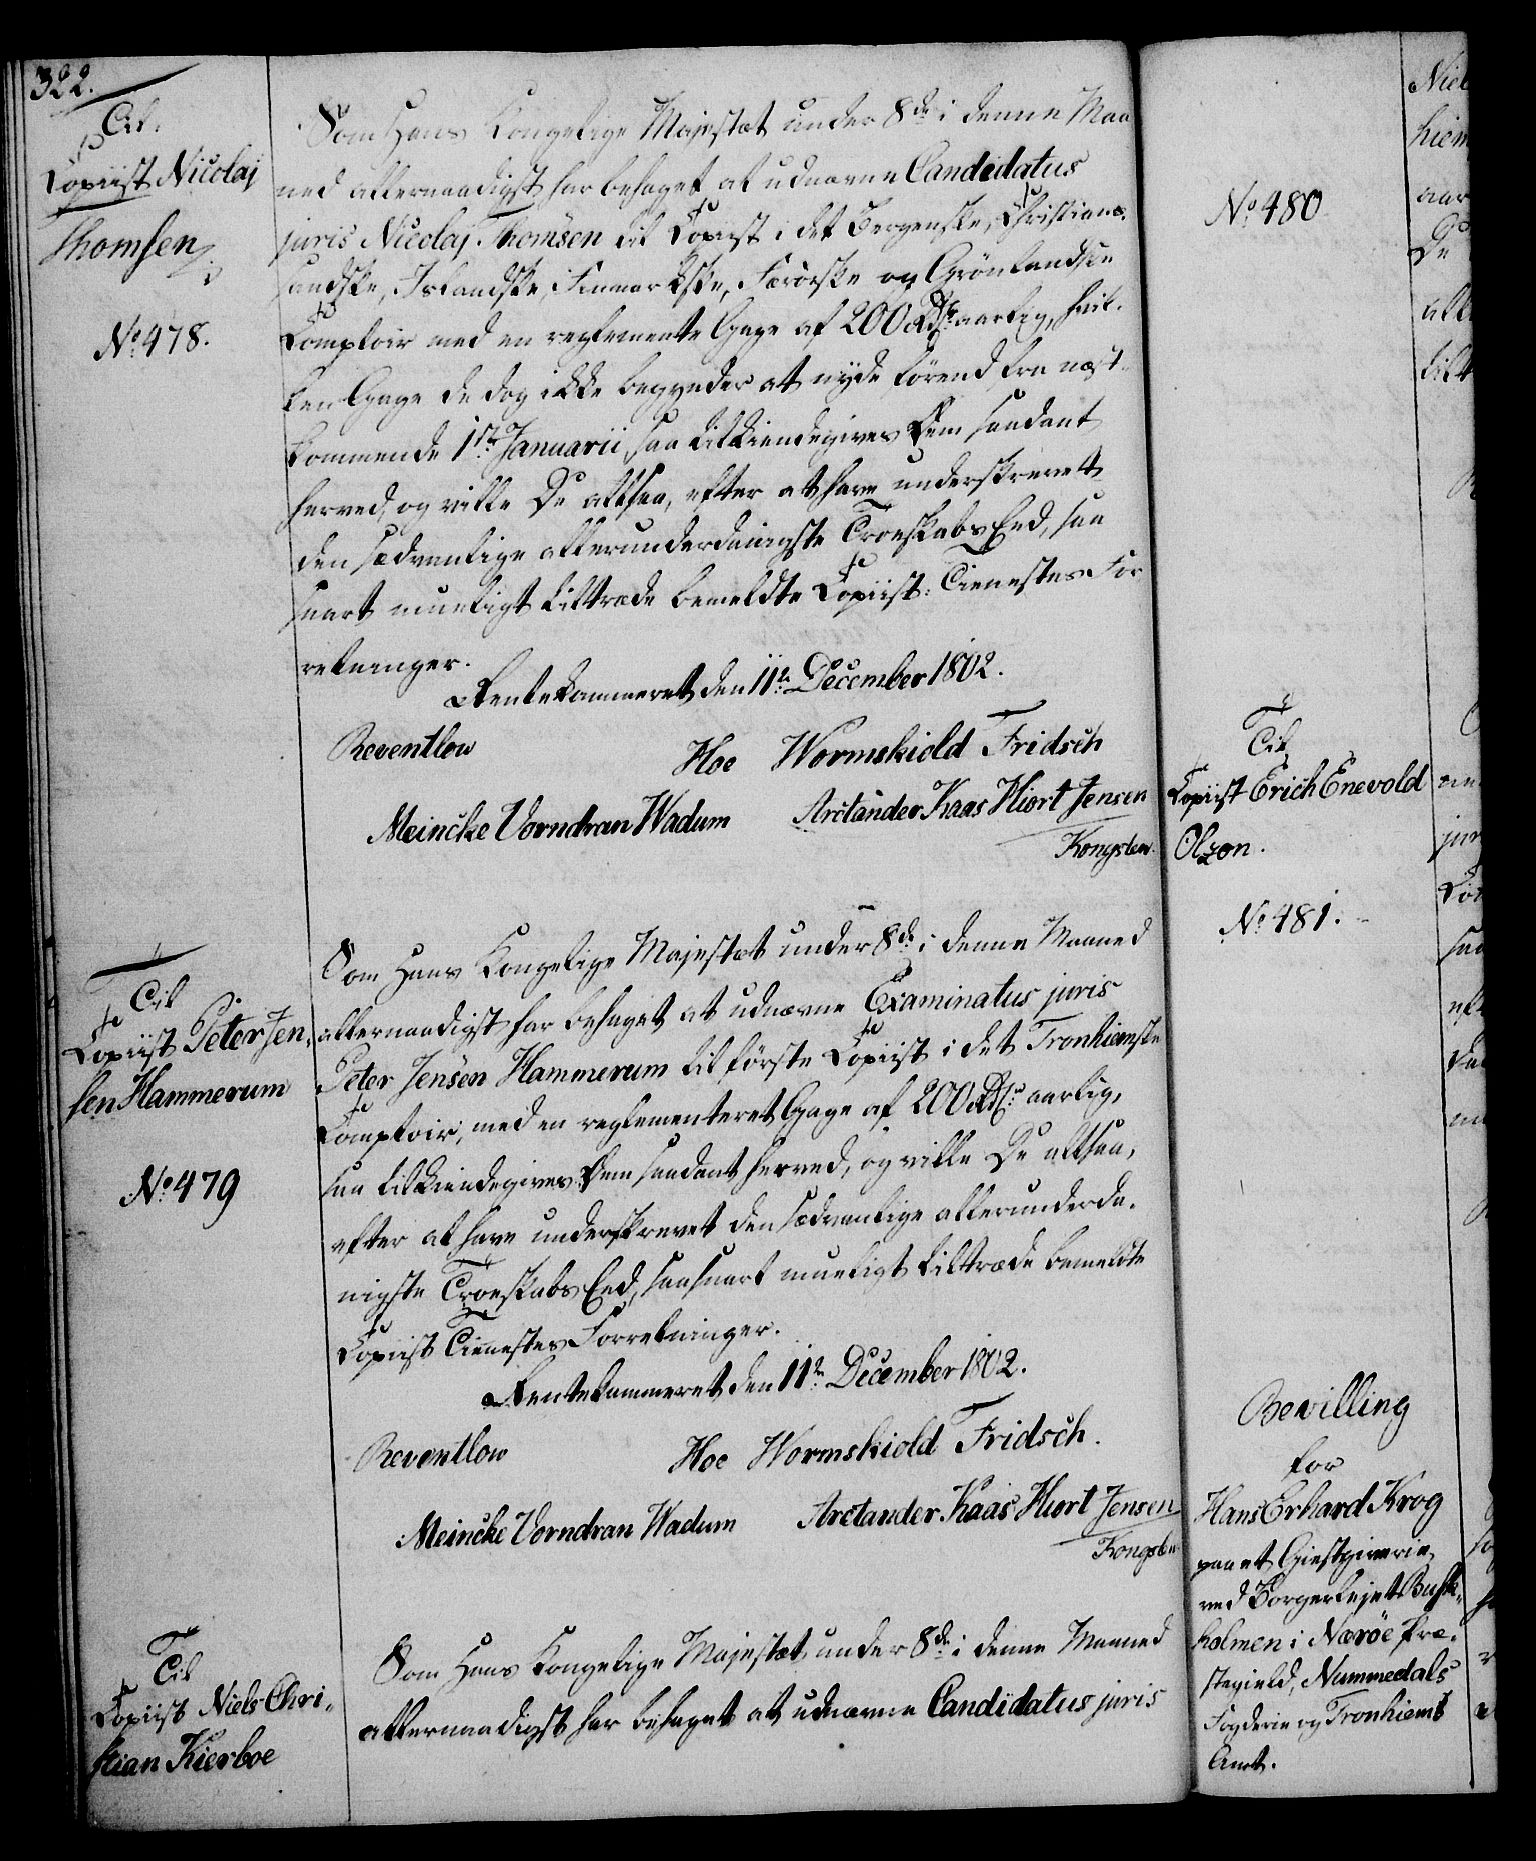 322.
Til
Copiist Nicolaj
Thomsen,
No 478.
Som Hans Kongelige Majestæt under 8de i denne Maa
ned allernaadigst har behaget at udnævne Candidatus
juris Nicolaj Thomsen til Copiist i det Bergenske, Christian-
sandske, Islandske, Finmarkske, Færöeske og Grönlandske
Comptoir med en reglementeret Gage af 200 Rdlr aarlig, hvil-
ken Gage De dog ikke begynder at nyde förend fra næst-
kommende 1ste Januarii, saa tilkiendegives Dem saadant
herved, og ville De altsaa, efter at have underskrevet
den sædvanlige allerunderdanigste Troeskabs Eed, saa
snart mueligt tiltræde bemeldte Copiist-Tienestes For
retninger.
Rentekammeret den 11te December 1802.
Reventlow
Hoe Wormskiold Fridsch
Meincke Vorndran Wadum Arctander Kaas Hiort Jensen
Kongslew.
Til
Copiist Peter Jen-
sen Hammerum
No 479
Som Hans Kongelige Majestæt under 8de i denne Maaned
allernaadigst har behaget at udnævne Examinatus juris
Peter Jensen Hammerum til förste Copiist i det Tronhiemske
Comptoir, med en reglementeret Gage af 200 Rdlr aarlig,
saa tilkiendegives Dem saadant herved, og ville De altsaa,
efter at have underskrevet den sædvanlige allerunderda-
nigste Troeskabs Eed, saasnart mueligt tiltræde bemeldte
Copiist Tienestes Forretninger.
Rentekammeret den 11te December 1802.
Reventlow
Hoe Wormskiold Fridsch.
Meincke Vorndran Wadum Arctander Kaas Hiort Jensen
Kongslew
Til
Copiist Niels Chri-
stian Kierboe
Som Hans Kongelige Majestæt under 8de i denne Maaned
allernaadigst har behaget at udnævne Candidatus juris
No 480
Til
Copiist Erich Enevold
Olzon.
No 481.
Bevilling
for
Hans Erhard Krog
paa et Giestgiverie
ved Borgerlejet Busk-
holmen i Næröe Præ-
stegield, Nummedals
Fogderie og Tronhiems
Amt.